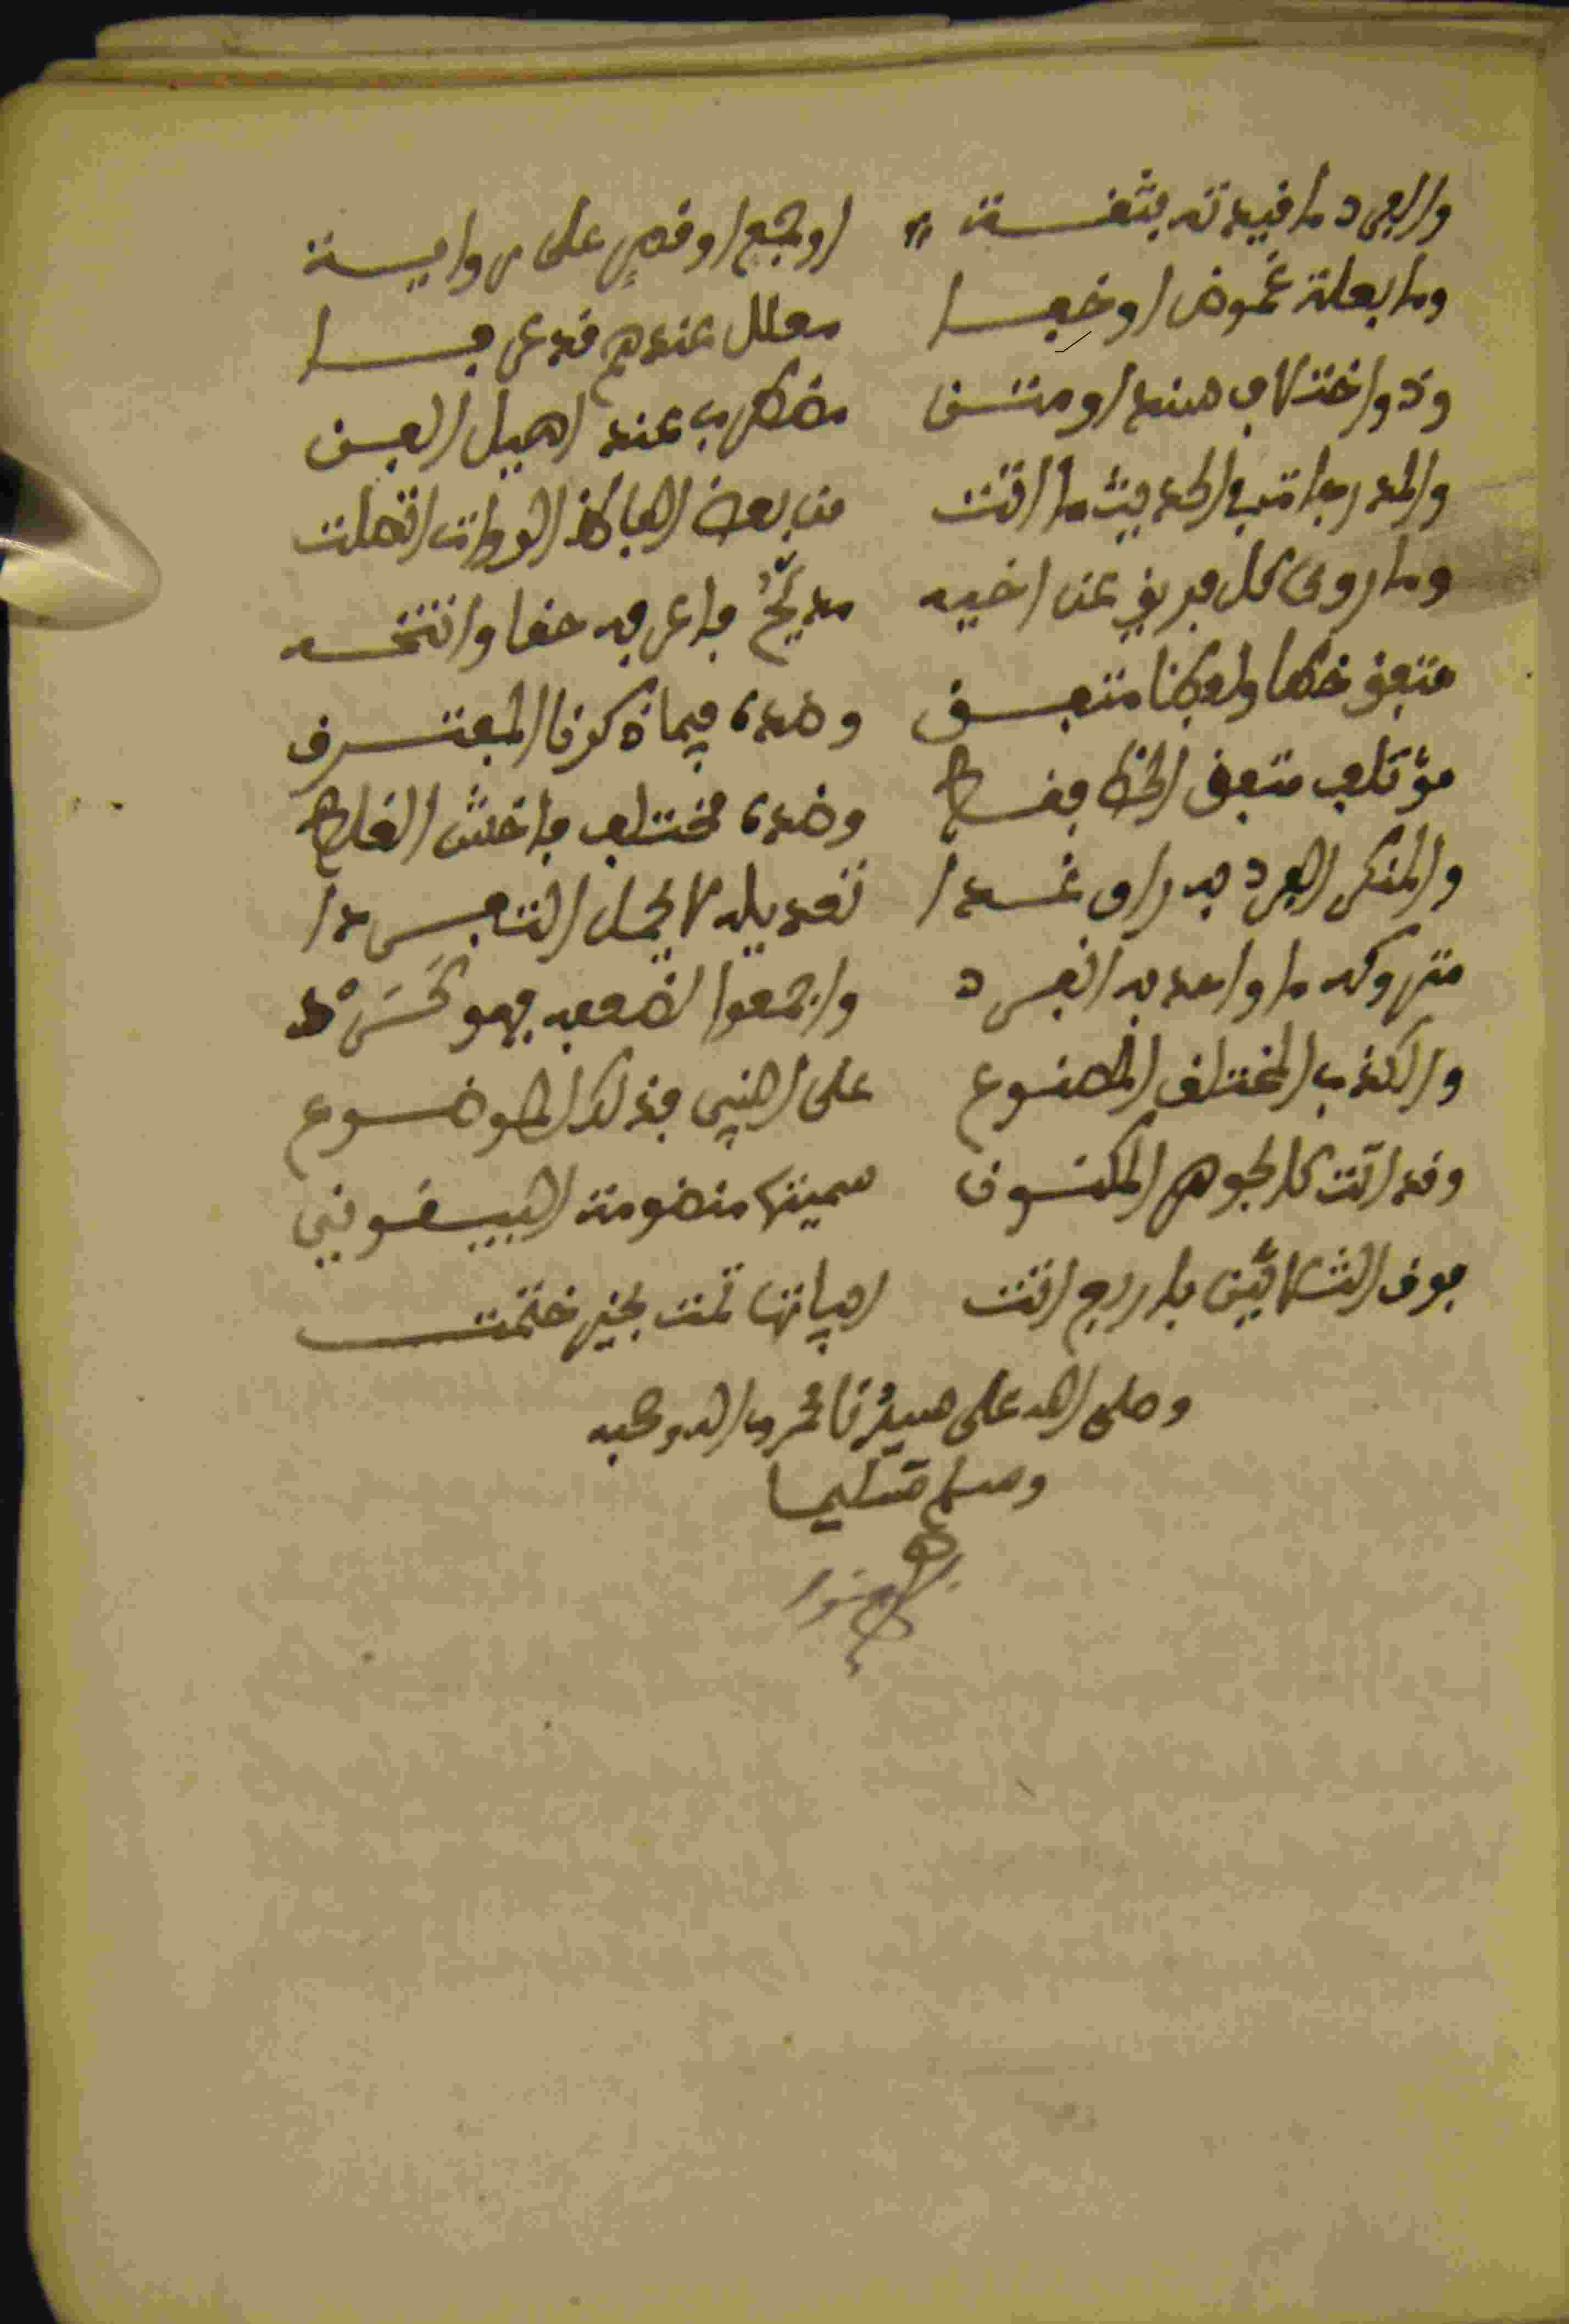 والفرد ما قيدته بثقة اوجمع او قصر على رواية
وما بعلة غموض او خفا معلل عندهم قد عرفا
وذو اختلاف سند او متن مضطرب عند اهيل الفن
والمدرجات في الحديث ما اتت من بعض الفاظ الروات اتصلت
وما روى كل قرين عن اخيه مدبج فاعرفه حقا وانتخه
متفق خطا ولفظا متفق وضده فيما ذكرنا المفترق
مؤتلف متفق الخط فقط وضده مختلف فاخش الغلط
والمنكر الفرد به راو غدا تعديله لا يحمل التفردا
متروكه ما واحد به انفرد واجمعوا لضعفه فهو كرد
والكذب المختلق المصنوع على النبي فذلك الموضوع
وقد اتت كالجوهر المكنون سميتها منضومة البيقوني
فوق الثلاثين باربع اتت ابياتها تمت بخير ختمت
وصلى الله على سيدنا محمد واله وصحبه
وسلم تسليما